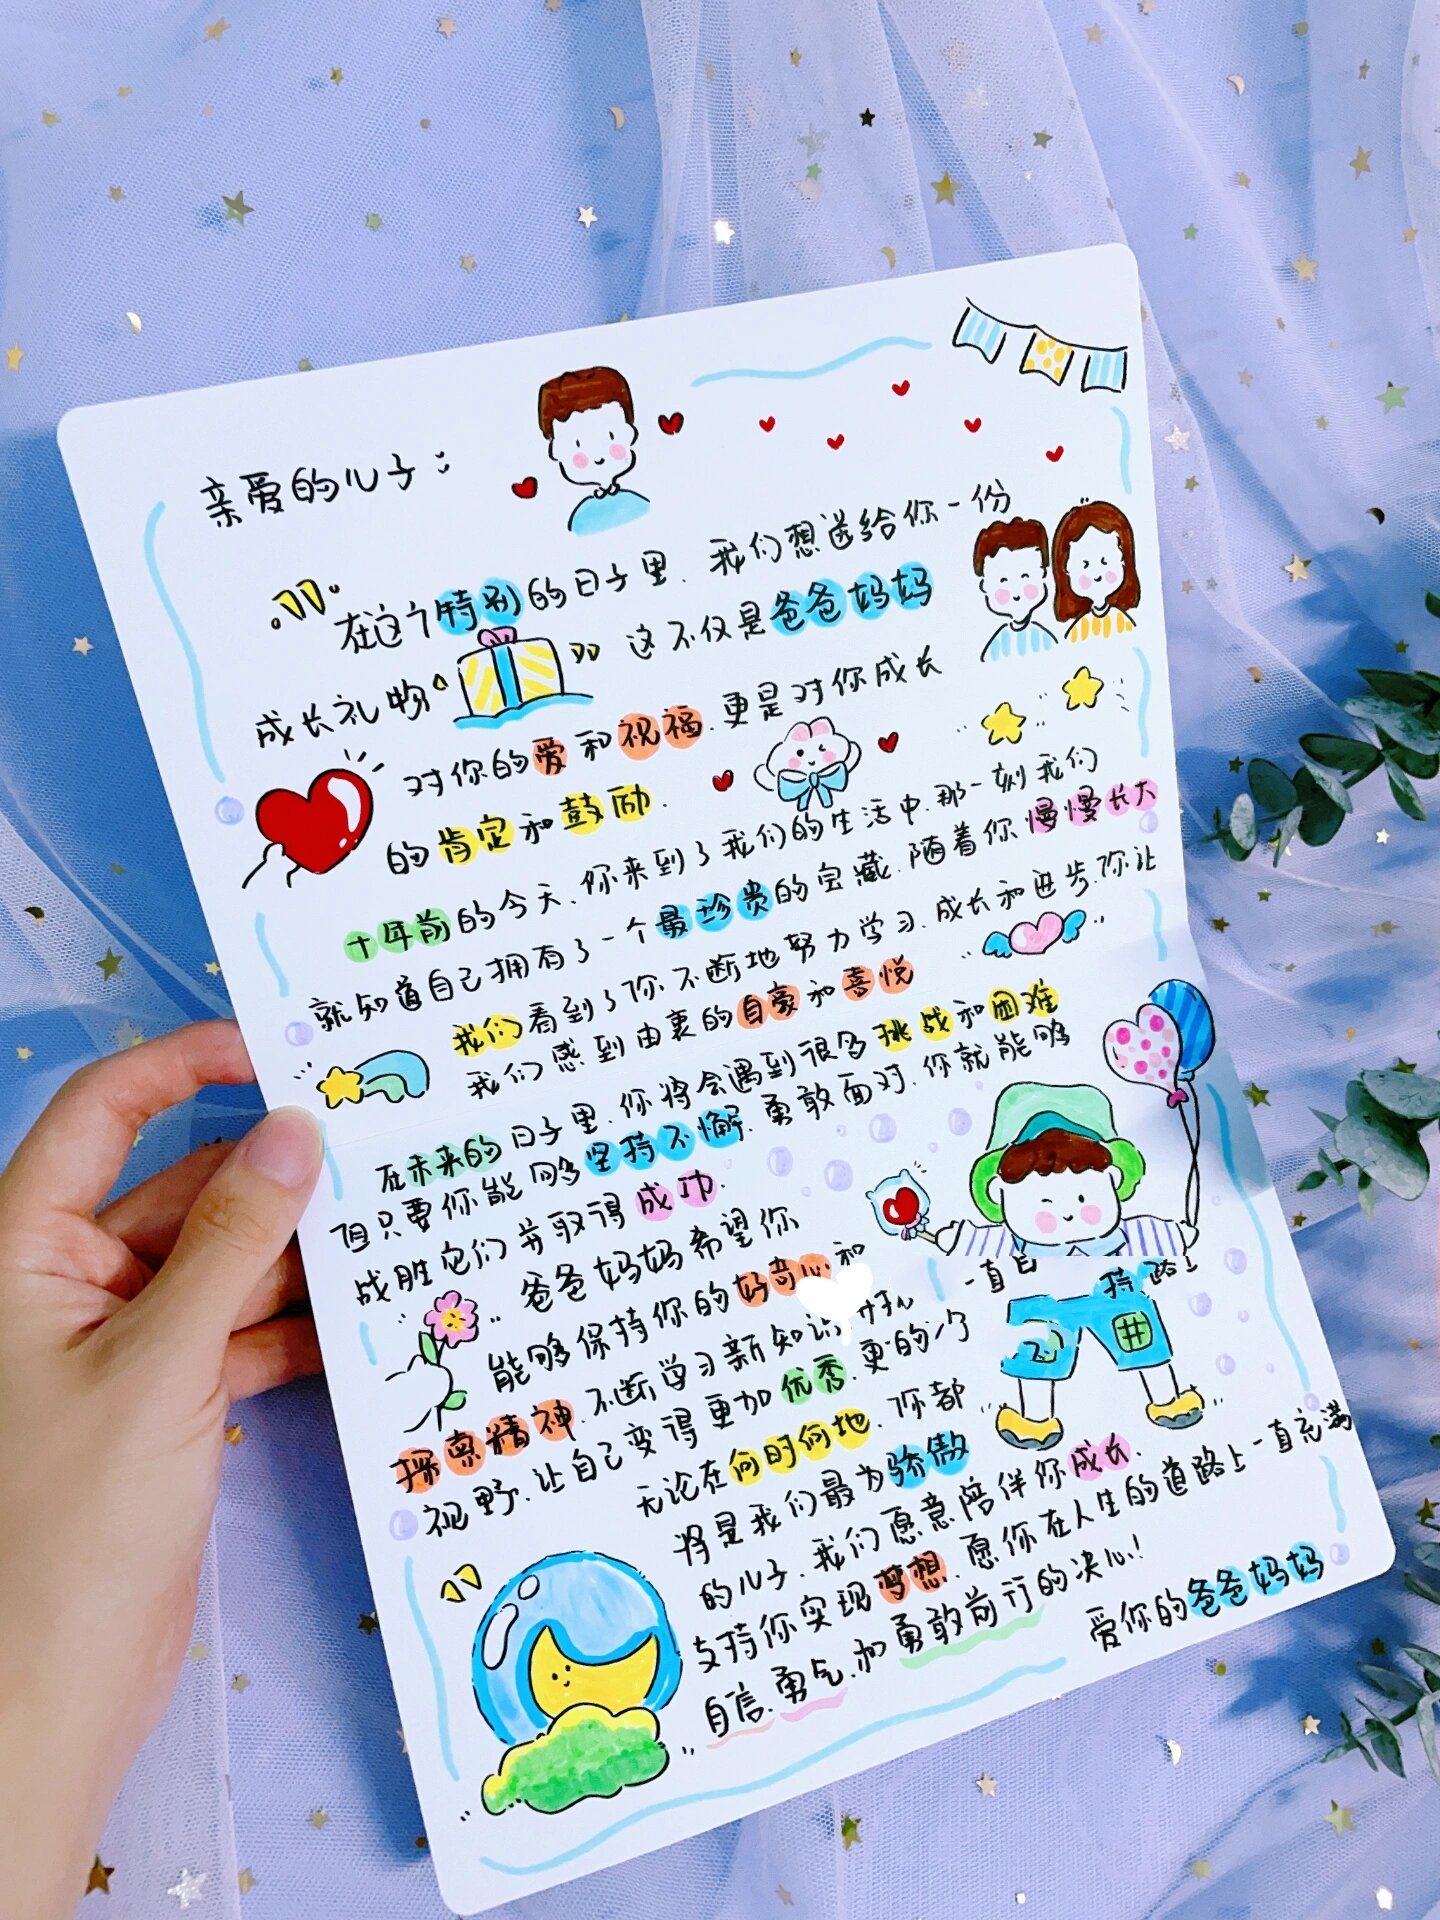 亲爱的儿子:
在这个特别的日子里.我们想送给你一份
成长礼物 这不仅是爸爸妈妈
对你的爱和祝福.更是对你成长
的肯定和鼓励.
十年前的今天.你来到了我们的生活中.那一刻我们
就知道自己拥有了一个最珍贵的宝藏.随着你慢慢长大
我们看到了你不断地努力学习.成长和进步.你让
我们感到由衷的自豪和喜悦
在未来的日子里.你将会遇到很多挑战和困难
但只要你能够坚持不懈.勇敢面对.你就能够
战胜它们并取得成功.
爸爸妈妈希望你
能够保持你的好奇心和
一直 持 路上
探索精神.不断学习新知识
视野.让自己变得更加优秀.更 的
无论在何时何地.你都
将是我们最为骄傲
的儿子.我们愿意陪伴你成长.
支持你实现梦想.愿你在人生的道路上一直充满
自信.勇气.和勇敢前行的决心!
爱你的爸爸妈妈